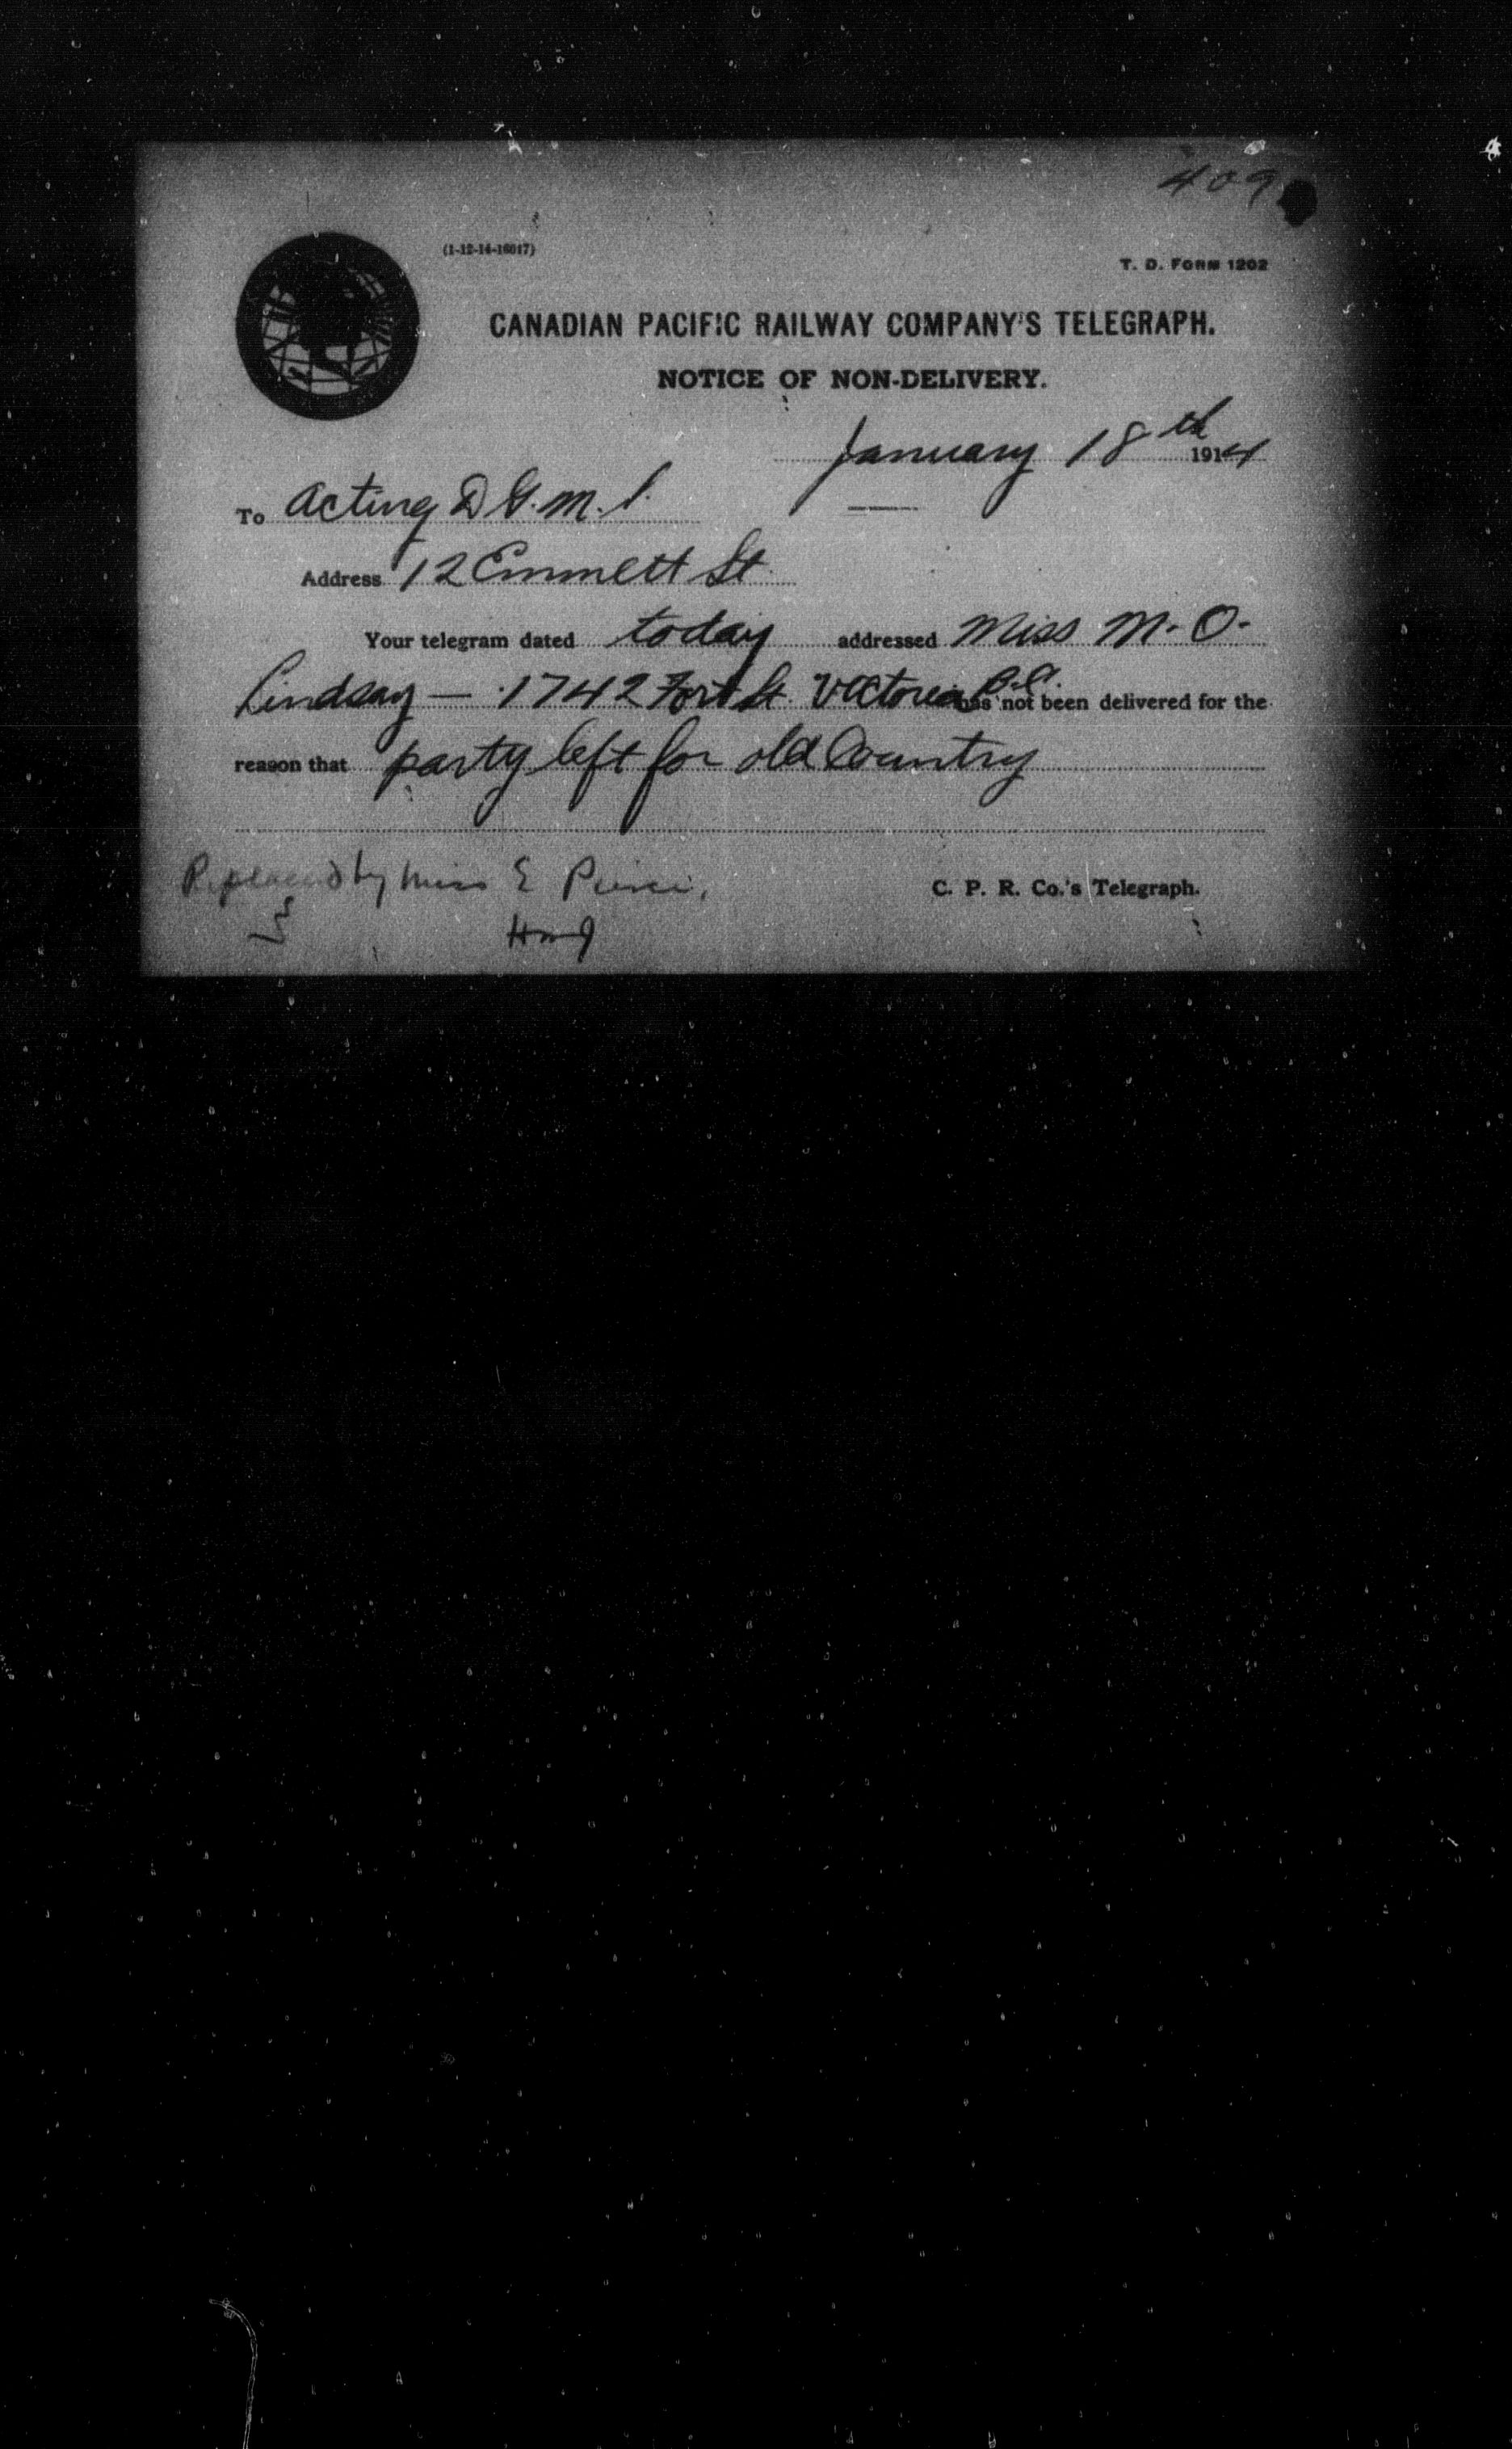 409
(1-12-14-16017)
T. D. FORM 1202
CANADIAN PACIFIC RAILWAY COMPANY'S TELEGRAPH.
NOTICE OF NON-DELIVERY.
January 18th 1914
To Acting D G. M. S.
Address 12 Emmett St
Your telegram dated today addressed Miss M. O.
Lindsay — 1742 Fort St. Victoria B.C. has not been delivered for the
reason that party left for old Country
Replaced by Miss E
C. P. R. Co.'s Telegraph.